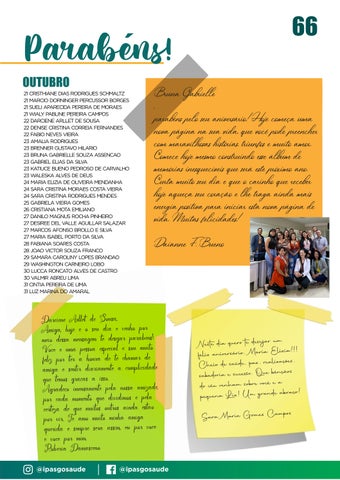 66
Parabéns!
OUTUBRO
21 CRISTHIANE DIAS RODRIGUES SCHMALTZ
21 MARCIO DORNINGER PERCUSSOR BORGES
21 SUELI APARECIDA PEREIRA DE MORAES
21 WALY PABLINE PEREIRA CAMPOS
22 DARCIENE ARLLET DE SOUSA
22 DENISE CRISTINA CORREIA FERNANDES
22 FABIO NEVES VIEIRA
23 AMALIA RODRIGUES
23 BRENNER GUSTAVO HILARIO
23 BRUNA GABRIELLE SOUZA ASSENCAO
23 GABRIEL ELIAS DA SILVA
23 KATIUCE BUENO PEDROSO DE CARVALHO
23 WALESKA ALVES DE DEUS
24 MARIA ELEIZA DE OLIVEIRA MENDANHA
24 SARA CRISTINA MORAES COSTA VIEIRA
24 SARA CRISTINA MENDES RODRIGUES
25 GABRIELA VIEIRA GOMES
26 CRISTIANA MOTA EMILIANO
27 DANILO MAGNUS ROCHA PINHEIRO
27 DESIREE DEL VALLE AGUILAR SALAZAR
27 MARCOS AFONSO BRIOLLO E SILVA
27 MARIA ISABEL PORTO DA SILVA
28 FABIANA SOARES COSTA
28 JOAO VICTOR SOUZA FRANCO
29 SAMARA CAROLINY LOPES BRANDAO
29 WASHINGTON CARNEIRO LOBO
30 LUCCA RONCATO ALVES DE CASTRO
30 VALMIR ABREU LIMA
31 CINTIA PEREIRA DE LIMA
31 LUZ MARINA DO AMARAL
Bruna Gabrielle
parabéns pelo seu aniversário! Hoje começa uma
nova página na sua vida, que você pode preencher
com maravilhosas histórias triunfos e muito amor.
Comece hoje mesmo construindo esse álbum de
memórias inesquecíveis que será este próximo ano.
Curta muito seu dia e que o carinho que receber
hoje aqueça seu coração e lhe traga ainda mais
energia positiva para iniciar esta nova página de
vida. Muitas felicidades!
Daianne F. Bueno
Darciene Arllet de Sousa,
Amiga, hoje é o seu dia e venho por
meio dessa mensagem te desejar parabéns!
Você é uma pessoa especial e sou muito
feliz por ter a honra de te chamar de
amiga e sentir diariamente a cumplicidade
que temos graças a isso.
Agradeço imensamente pela nossa amizade,
por cada momento que dividimos e pela
certeza de que muitos outros ainda estão
por vir. Te amo muito minha amiga
querida e sempre serei assim, eu por você
e você por mim.
Patricia Damascena
Neste dia quero te desejar um
feliz aniversário, Maria Eleiza!!!
Cheio de saúde, paz, realizações,
sabedoria e sucesso. Que bençãos
do céu venham sobre você e a
pequena Lia! Um grande abraço!
Sara Maria Gomes Campos
@ipasgosaude
@ipasgosaude